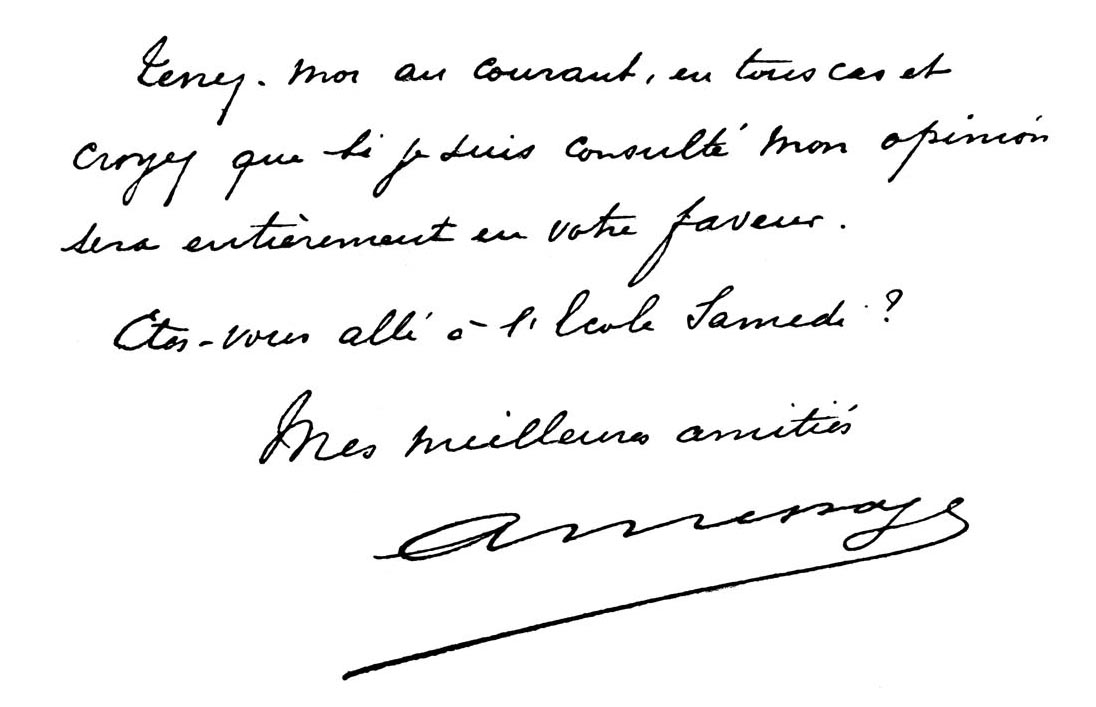 Tenez-moi au courant, en tous cas et
croyez que si je suis consulté mon opinion
sera entièrement en votre faveur.
Etes-vous allé à l'Ecole Samedi ?
Mes meilleures amitiés
A Messager